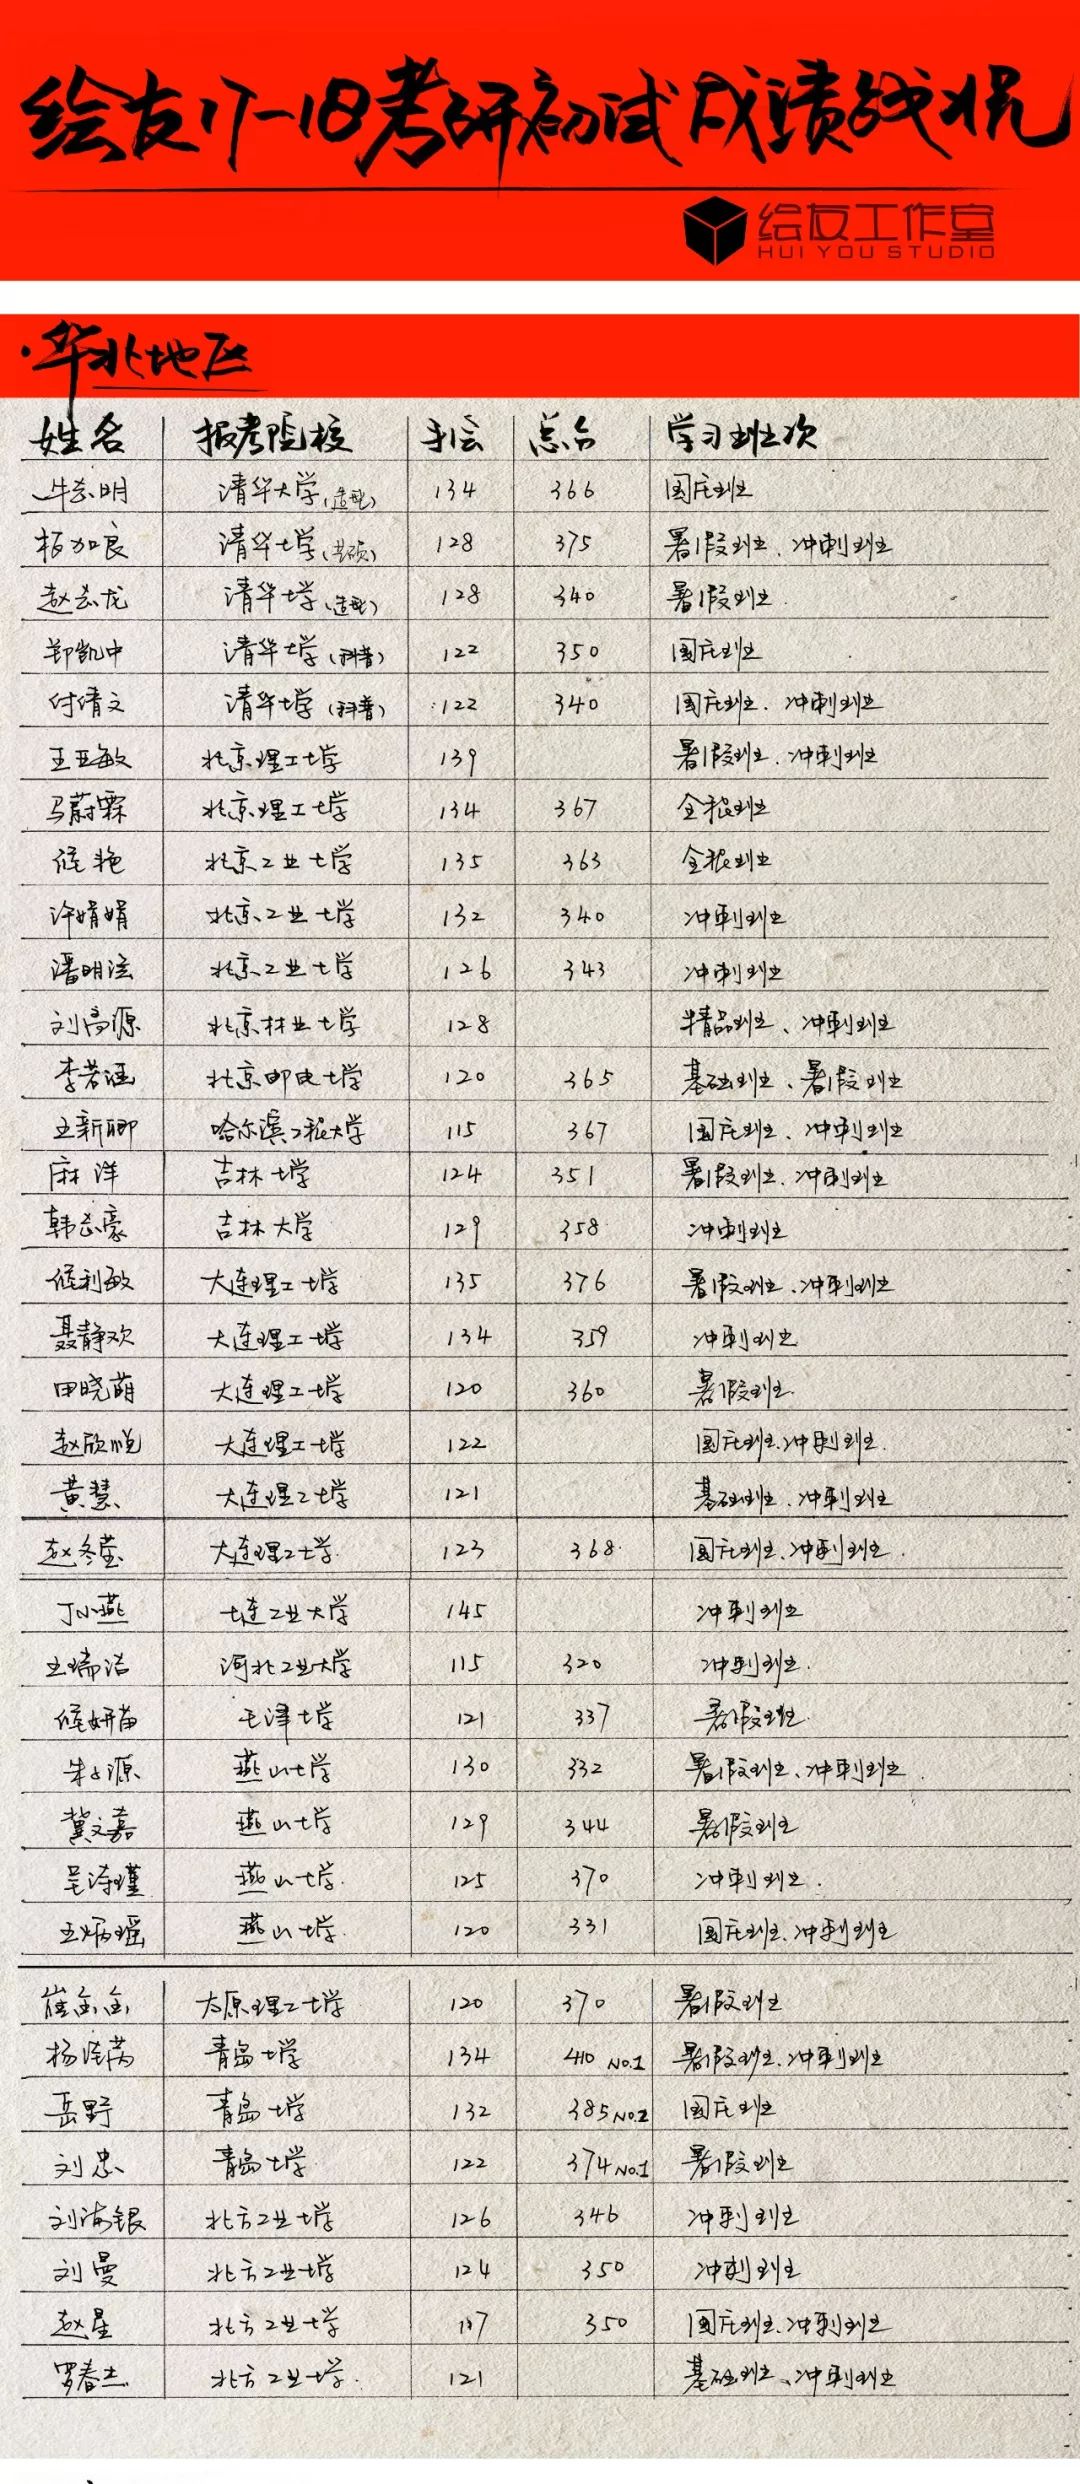 绘友17-18考研初试成绩战况
绘友工作室
HUI YOU STUDIO
·华北地区
姓名 报考院校 手绘 总分 学习班次
牛志明 清华大学(造型) 134 366 国庆班
柏加良 清华大学(艺硕) 128 375 暑假班、冲刺班
赵志龙 清华大学(造型) 128 340 暑假班
郑凯中 清华大学(科普) 122 350 国庆班
付倩文 清华大学(科普) 122 340 国庆班、冲刺班
王亚敏 北京理工大学 139 暑假班、冲刺班
马蔚霖 北京理工大学 134 367 全程班
侯艳 北京工业大学 135 363 全程班
许娟娟 北京工业大学 132 340 冲刺班
潘明泫 北京工业大学 126 343 冲刺班
刘高源 北京林业大学 128 精品班、冲刺班
李若涵 北京邮电大学 120 365 基础班、暑假班
王新卿 哈尔滨工程大学 115 367 国庆班、冲刺班
麻洋 吉林大学 124 351 暑假班、冲刺班
韩志豪 吉林大学 129 358 冲刺班
侯利敏 大连理工大学 135 376 暑假班、冲刺班
聂静欢 大连理工大学 134 359 冲刺班
田晓萌 大连理工大学 120 360 暑假班
赵欣悦 大连理工大学 122 国庆班、冲刺班
黄慧 大连理工大学 121 基础班、冲刺班
赵冬莹 大连理工大学 123 368 国庆班、冲刺班
丁小燕 大连工业大学 145 冲刺班
王瑞洁 河北工业大学 115 320 冲刺班
侯妍苗 天津大学 121 337 暑假班
朱源 燕山大学 130 332 暑假班、冲刺班
冀文嘉 燕山大学 129 344 暑假班
吴涛瑾 燕山大学 125 370 冲刺班
王炳瑶 燕山大学 120 331 国庆班、冲刺班
崔金金 太原理工大学 120 370 暑假班
杨满 青岛大学 134 410 NO.1 暑假班、冲刺班
岳野 青岛大学 132 385 NO.2 国庆班
刘忠 青岛大学 122 374 NO.1 暑假班
刘海银 北方工业大学 126 346 冲刺班
刘曼 北方工业大学 124 350 冲刺班
赵星 北方工业大学 117 350 国庆班、冲刺班
罗春杰 北方工业大学 121 基础班、冲刺班